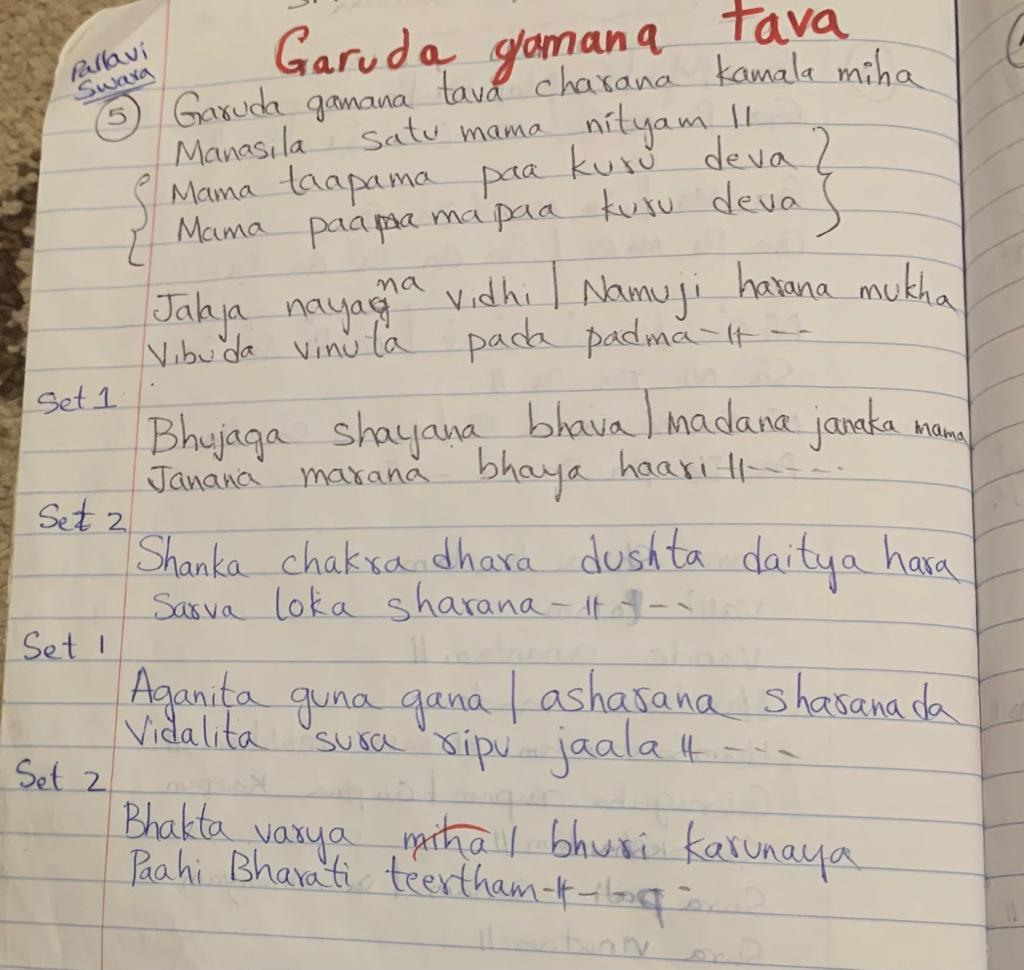 Garuda gamana tava
Pallavi
Swara
5 Garuda gamana tava charana kamala miha
Manasila satu mama nityam ||
{ Mama taapama paa kuru deva }
{ Mama paapamapaa kuru deva }
Jalaja nayana vidhi | Namuji harana mukha
Vibuda vinuta pada padma - || - - -
Set 1
Bhujaga shayana bhava | madana janaka mama
Janana marana bhaya haari || - - - - -
Set 2
Shanka chakra dhara dushta daitya hara
Sarva loka sharana - || - - -
Set 1
Aganita guna gana | asharana sharanada
Vidalita sura ripu jaala || - - -
Set 2
Bhakta varya miha | bhuri karunaya
Paahi Bharati teertham - || - -